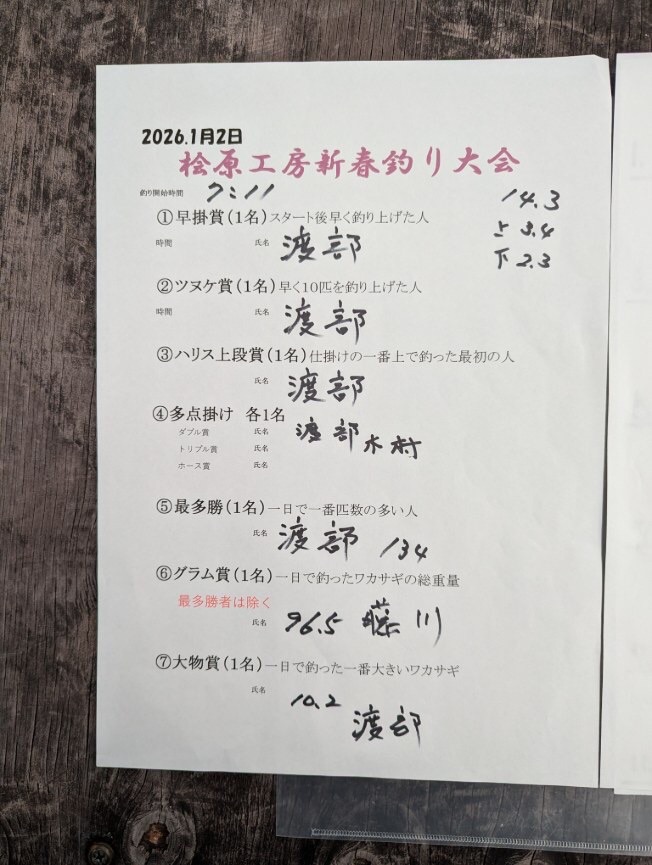 2026.1月2日
桧原工房新春釣り大会
釣り開始時間 7:11
14.3
上 3.4
下 2.3
①早掛賞(1名)スタート後早く釣り上げた人
時間 氏名 渡部
②ツヌケ賞(1名)早く10匹を釣り上げた人
時間 氏名 渡部
③ハリス上段賞(1名)仕掛けの一番上で釣った最初の人
氏名 渡部
④多点掛け 各1名
ダブル賞 氏名 渡部
トリプル賞 氏名 木村
ホース賞 氏名
⑤最多勝(1名)一日で一番匹数の多い人
氏名 渡部 134
⑥グラム賞(1名)一日で釣ったワカサギの総重量
最多勝者は除く
氏名 96.5 藤川
⑦大物賞(1名)一日で釣った一番大きいワカサギ
氏名 10.2 渡部